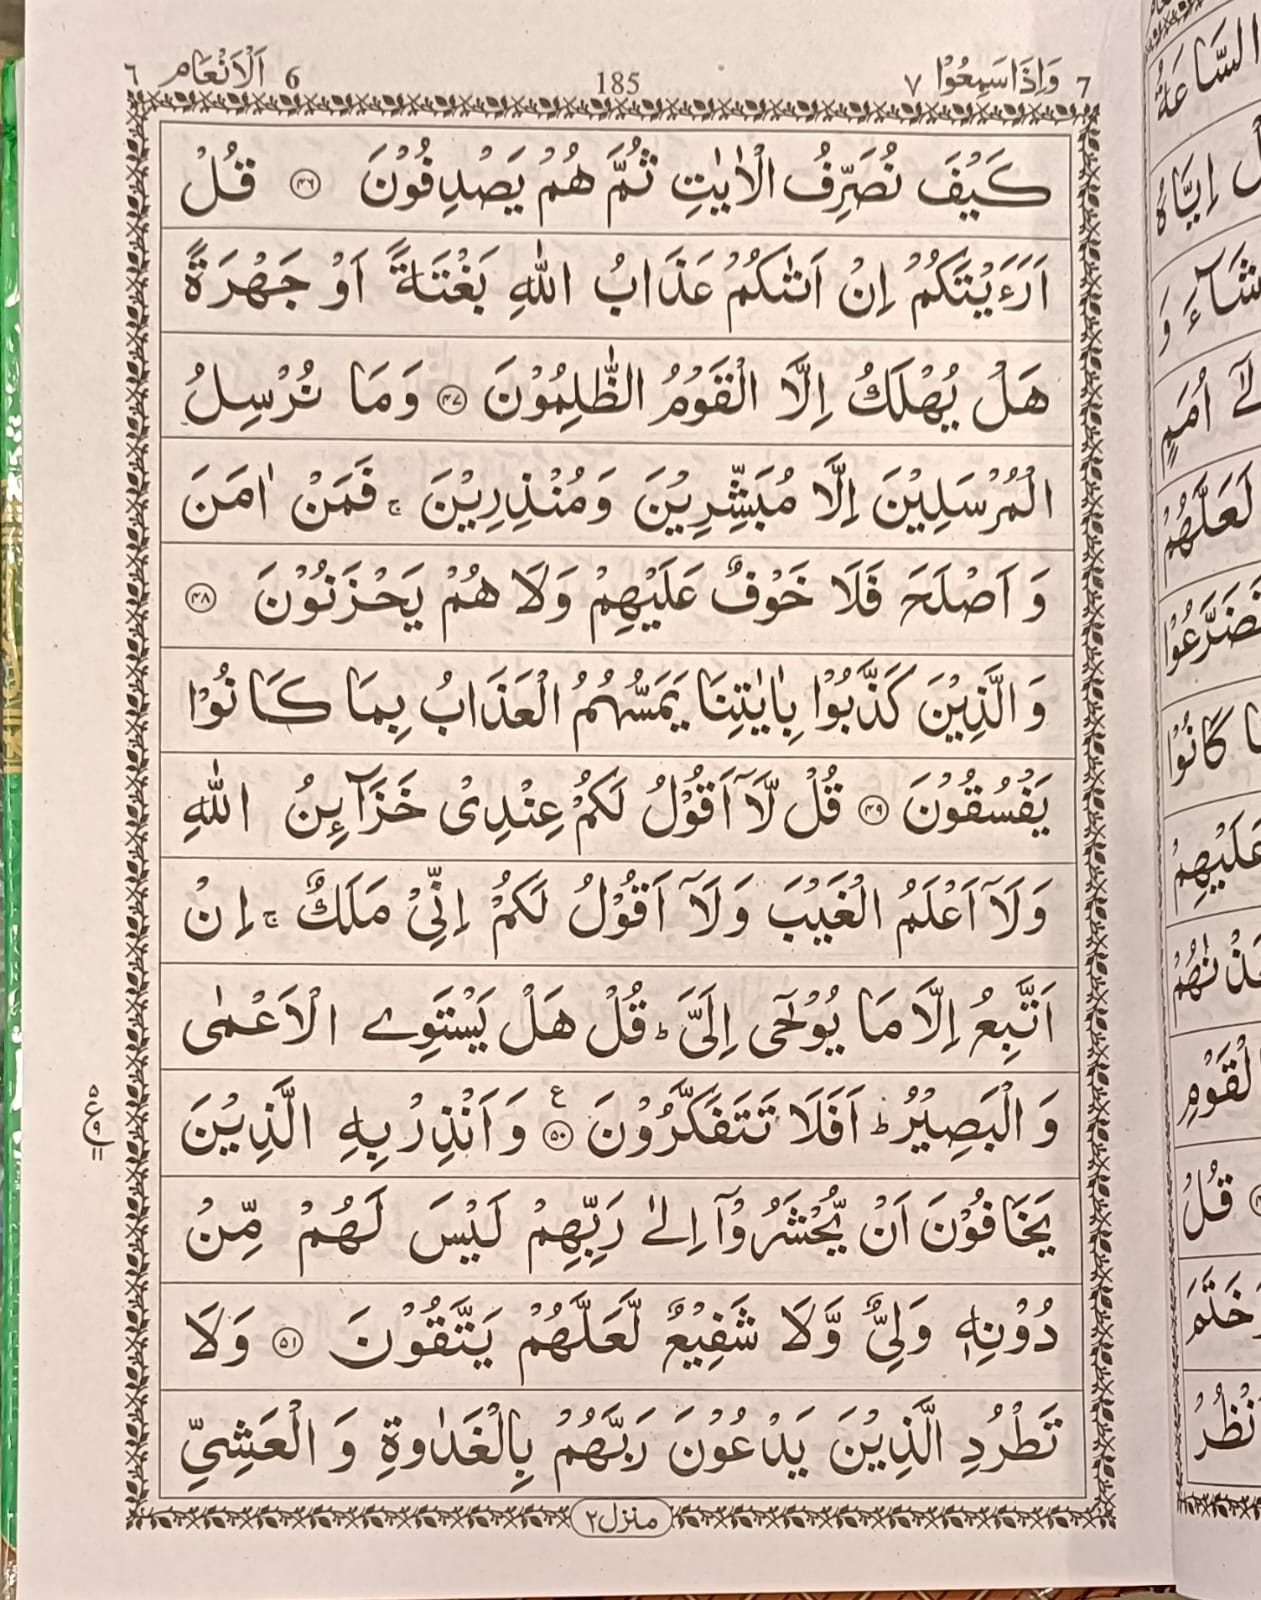 7 وَاِذَا سَمِعُوْا ٧ 185 6 اَلْاَنْعَام ٦
كَيْفَ نُصَرِّفُ الْاٰيٰتِ ثُمَّ هُمْ يَصْدِفُوْنَ ﴿۴۶﴾ قُلْ
اَرَءَيْتَكُمْ اِنْ اَتٰىكُمْ عَذَابُ اللّٰهِ بَغْتَةً اَوْ جَهْرَةً
هَلْ يُهْلَكُ اِلَّا الْقَوْمُ الظّٰلِمُوْنَ ﴿۴۷﴾ وَمَا نُرْسِلُ
الْمُرْسَلِيْنَ اِلَّا مُبَشِّرِيْنَ وَمُنْذِرِيْنَ ۚ فَمَنْ اٰمَنَ
وَ اَصْلَحَ فَلَا خَوْفٌ عَلَيْهِمْ وَلَا هُمْ يَحْزَنُوْنَ ﴿۴۸﴾
وَ الَّذِيْنَ كَذَّبُوْا بِاٰيٰتِنَا يَمَسُّهُمُ الْعَذَابُ بِمَا كَانُوْا
يَفْسُقُوْنَ ﴿۴۹﴾ قُلْ لَّاۤ اَقُوْلُ لَكُمْ عِنْدِىْ خَزَآئِنُ اللّٰهِ
وَلَاۤ اَعْلَمُ الْغَيْبَ وَلَاۤ اَقُوْلُ لَكُمْ اِنِّىْ مَلَكٌ ۚ اِنْ
اَتَّبِعُ اِلَّا مَا يُوْحٰۤى اِلَىَّ ؕ قُلْ هَلْ يَسْتَوِے الْاَعْمٰى
وَ الْبَصِيْرُ ؕ اَفَلَا تَتَفَكَّرُوْنَ ﴿۵۰﴾ ع وَ اَنْذِرْ بِهِ الَّذِيْنَ
۵ ع ۹ ۱۱
يَخَافُوْنَ اَنْ يُّحْشَرُوْۤا اِلٰى رَبِّهِمْ لَيْسَ لَهُمْ مِّنْ
دُوْنِهٖ وَلِىٌّ وَّلَا شَفِيْعٌ لَّعَلَّهُمْ يَتَّقُوْنَ ﴿۵۱﴾ وَلَا
تَطْرُدِ الَّذِيْنَ يَدْعُوْنَ رَبَّهُمْ بِالْغَدٰوةِ وَ الْعَشِىِّ
منزل ۲
السَّاعَةُ
اِيَّاهُ
شَآءَ وَ
اُمَمٍ
لَعَلَّهُمْ
كَانُوْا
عَلَيْهِمْ
الْقَوْمِ
قُلْ
خَتَمَ